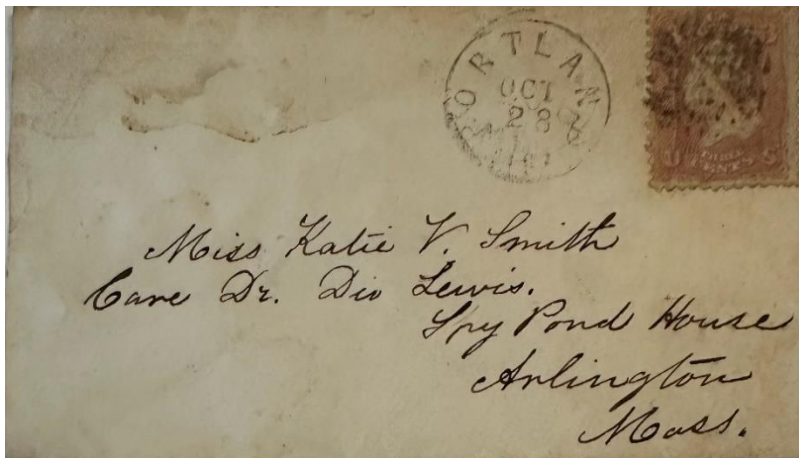 PORTLAND
OCT
28
U THREE S
CENTS
Miss Katie V. Smith
Care Dr. Dio Lewis.
Spy Pond House
Arlington
Mass.